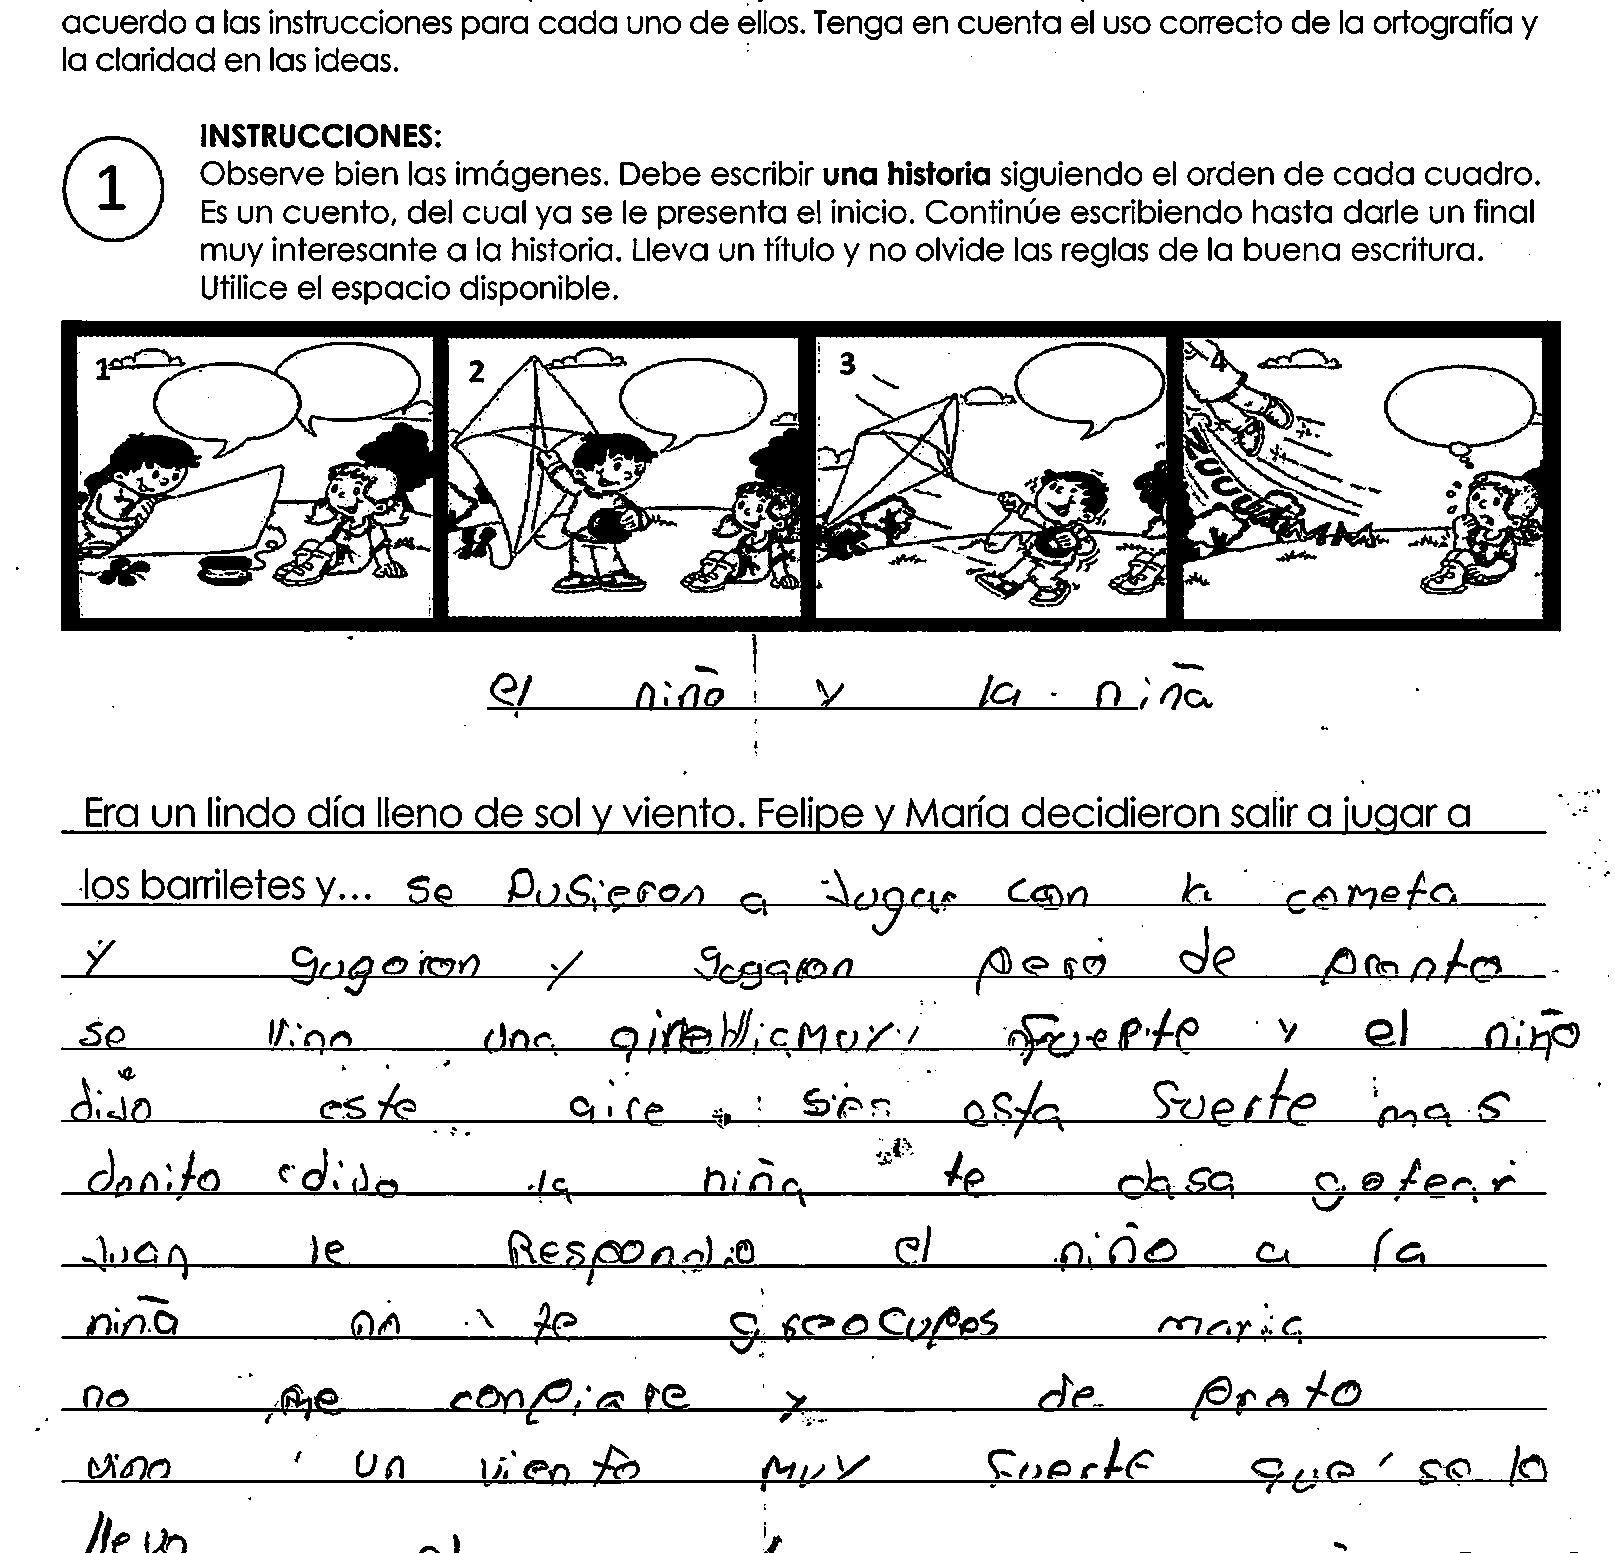 acuerdo a las instrucciones para cada uno de ellos. Tenga en cuenta el uso correcto de la ortografía y
la claridad en las ideas.
1
INSTRUCCIONES:
Observe bien las imágenes. Debe escribir una historia siguiendo el orden de cada cuadro.
Es un cuento, del cual ya se le presenta el inicio. Continúe escribiendo hasta darle un final
muy interesante a la historia. Lleva un título y no olvide las reglas de la buena escritura.
Utilice el espacio disponible.
1 2 3 4
el niño y la niña
Era un lindo día lleno de sol y viento. Felipe y María decidieron salir a jugar a
los barriletes y... se pusieron a Jugar con la cometa
y y pero de pronto
se vino una y el niño
dijo este aire esta fuerte mas
donito dijo la niña te
Juan le Respondio el niño a la
niña no te maria
no me confiare y de pronto
vino un viento muy fuerte que se lo